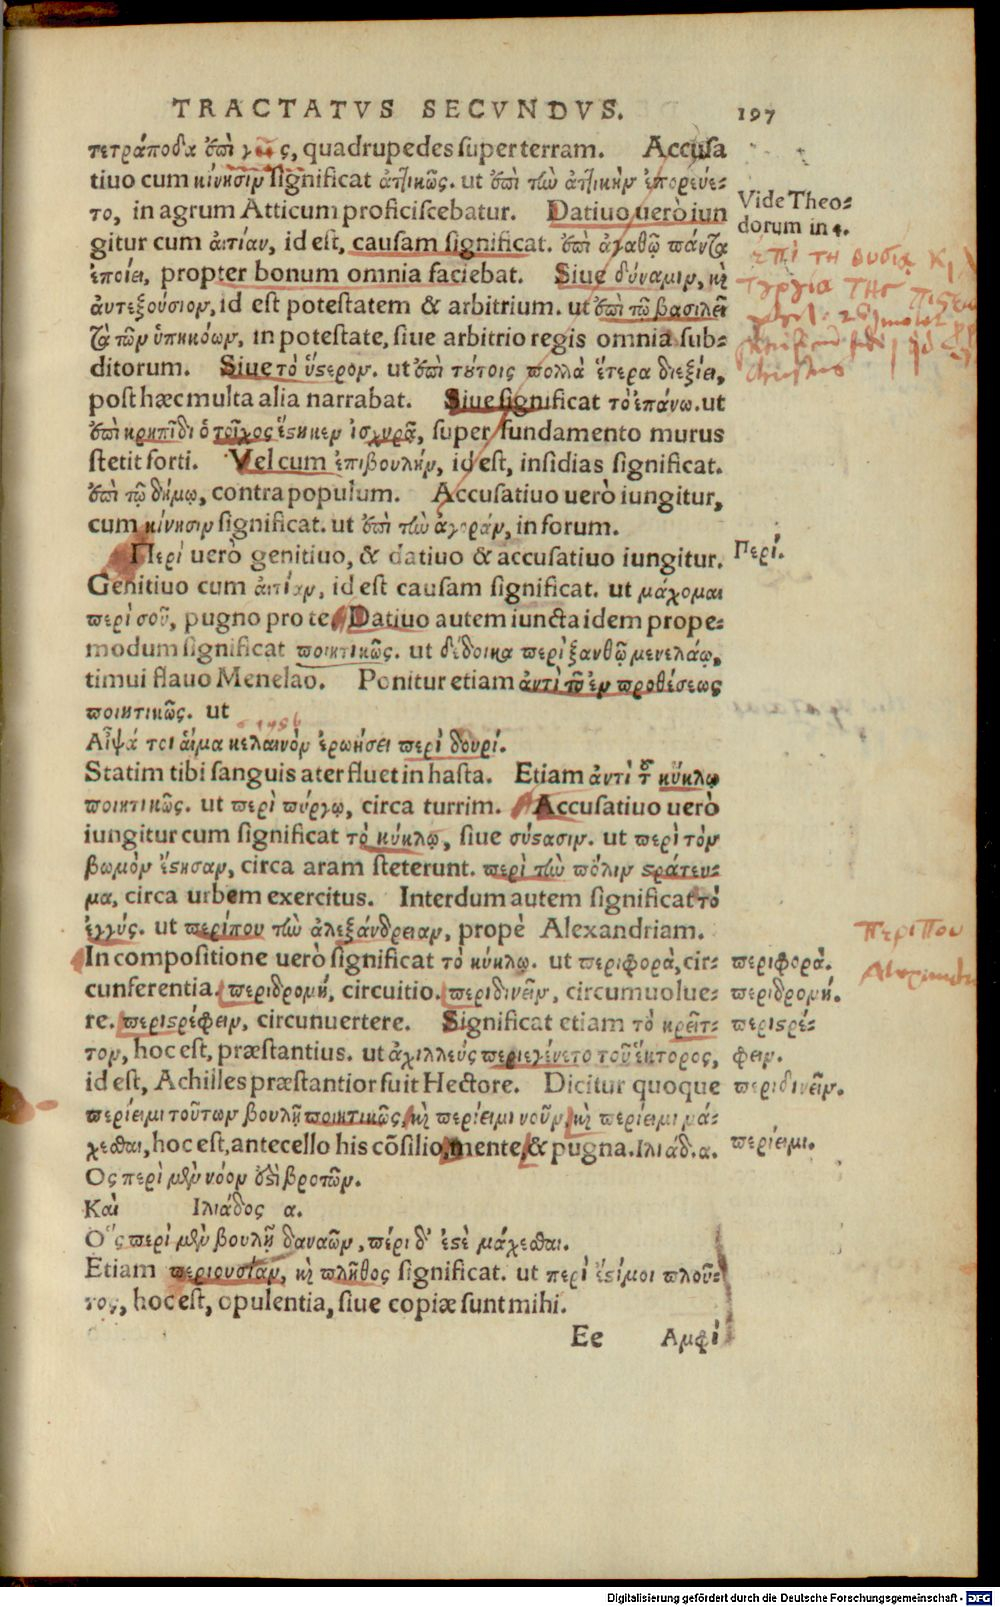 TRACTATVS SECVNDVS. 197
τετράποδα ἐπὶ γῆς, quadrupedes super terram. Accusa
tiuo cum κίνησιν significat ἀττικῶς. ut ἐπὶ τὴν ἀττικὴν ἐπορεύε-
το, in agrum Atticum proficiscebatur. Datiuo uerò iun
gitur cum αἰτίαν, id est, causam significat. ἐπὶ ἀγαθῷ πάντα
ἐποίει, propter bonum omnia faciebat. Siue δύναμιν, καὶ
αὐτεξούσιον, id est potestatem & arbitrium. ut ἐπὶ τῷ βασιλεῖ
τὰ τῶν ὑπηκόων, in potestate, siue arbitrio regis omnia sub-
ditorum. Siue τὸ ὕστερον. ut ἐπὶ τούτοις πολλὰ ἕτερα διεξίει,
post hæc multa alia narrabat. Siue significat τὸ ἐπάνω. ut
ἐπὶ κρηπῖδι ὁ τοῖχος ἕστηκεν ἰσχυρᾷ, super fundamento murus
stetit forti. Vel cum ἐπιβουλήν, id est, insidias significat.
ἐπὶ τῷ δήμῳ, contra populum. Accusatiuo uerò iungitur,
cum κίνησιν significat. ut ἐπὶ τὴν ἀγοράν, in forum.
Περὶ uerò genitiuo, & datiuo & accusatiuo iungitur.
Genitiuo cum αἰτίαν, id est causam significat. ut μάχομαι
περὶ σοῦ, pugno pro te. Datiuo autem iuncta idem prope-
modum significat ποιητικῶς. ut δέδοικα περὶ ξανθῷ μενελάῳ,
timui flauo Menelao. Ponitur etiam ἀντὶ τῆς ἐν προθέσεως
ποιητικῶς. ut
Αἶψά τοι αἷμα κελαινὸν ἐρωήσει περὶ δουρί.
Statim tibi sanguis ater fluet in hasta. Etiam ἀντὶ τοῦ κύκλῳ
ποιητικῶς. ut περὶ πύργῳ, circa turrim. Accusatiuo uerò
iungitur cum significat τὸ κύκλῳ, siue σύστασιν. ut περὶ τὸν
βωμὸν ἔστησαν, circa aram steterunt. περὶ τὴν πόλιν στράτευ-
μα, circa urbem exercitus. Interdum autem significat τὸ
ἐγγύς. ut περίπου τὴν ἀλεξάνδρειαν, propè Alexandriam.
In compositione uerò significat τὸ κύκλῳ. ut περιφορὰ, cir-
cunferentia. περιδρομή, circuitio. περιδινεῖν, circumuolue-
re. περιστρέφειν, circunuertere. Significat etiam τὸ κρεῖτ-
τον, hoc est, præstantius. ut ἀχιλλεὺς περιεγένετο τοῦ ἕκτορος,
id est, Achilles præstantior fuit Hectore. Dicitur quoque
περίειμι τούτων βουλῇ ποιητικῶς, καὶ περίειμι νοῦν, καὶ περίειμι μά-
χεσθαι, hoc est, antecello his cõsilio, mente, & pugna. Ιλιάδ. α.
Ος περὶ μὲν νόον ἐστὶ βροτῶν.
Καὶ Ιλιάδος α.
Οἳ περὶ μὲν βουλῇ δαναῶν, πέρι δ' ἐστὲ μάχεσθαι.
Etiam περιουσίαν, καὶ πλῆθος significat. ut περὶ ἐστί μοι πλοῦ-
τος, hoc est, opulentia, siue copiæ sunt mihi.
Ee Αμφὶ
Vide Theo-
dorum in 4.
ἐπὶ τῇ θυσίᾳ
Περί.
περίπου
περιφορά.
περιδρομή.
περιστρέ-
φειν.
περιδινεῖν.
περίειμι.
Digitalisierung gefördert durch die Deutsche Forschungsgemeinschaft - DFG